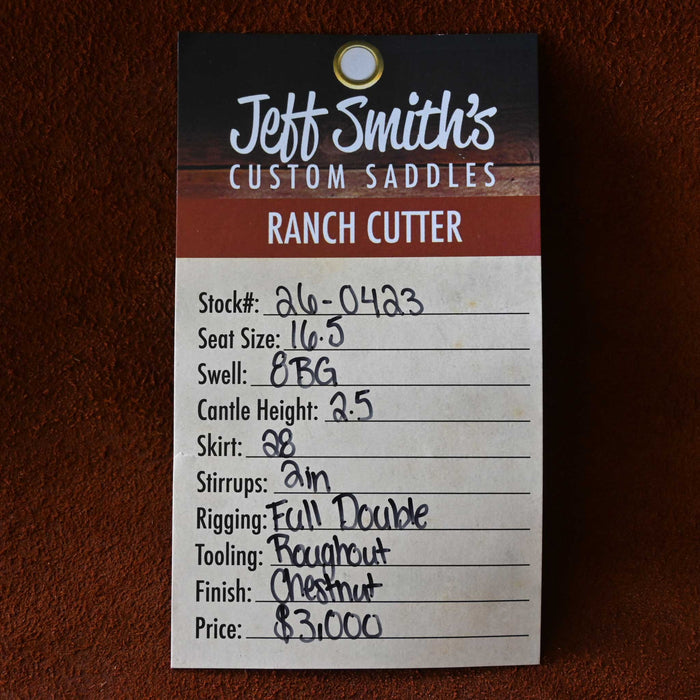 Jeff Smith's
CUSTOM SADDLES
RANCH CUTTER
Stock#: 26-0423
Seat Size: 16.5
Swell: 8BG
Cantle Height: 2.5
Skirt: 28
Stirrups: 2in
Rigging: Full Double
Tooling: Roughout
Finish: Chestnut
Price: $3,000